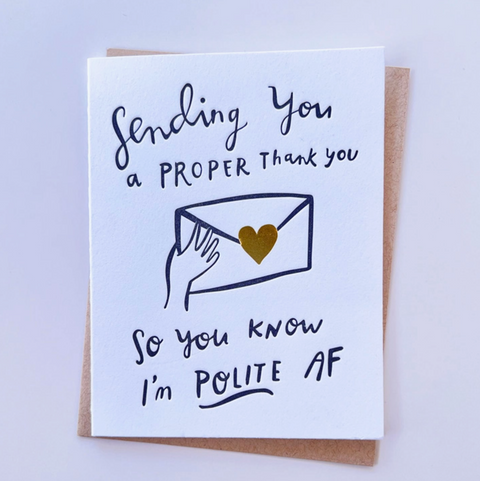 Sending You
a PROPER Thank you
So you KNOW
I'm POLITE AF